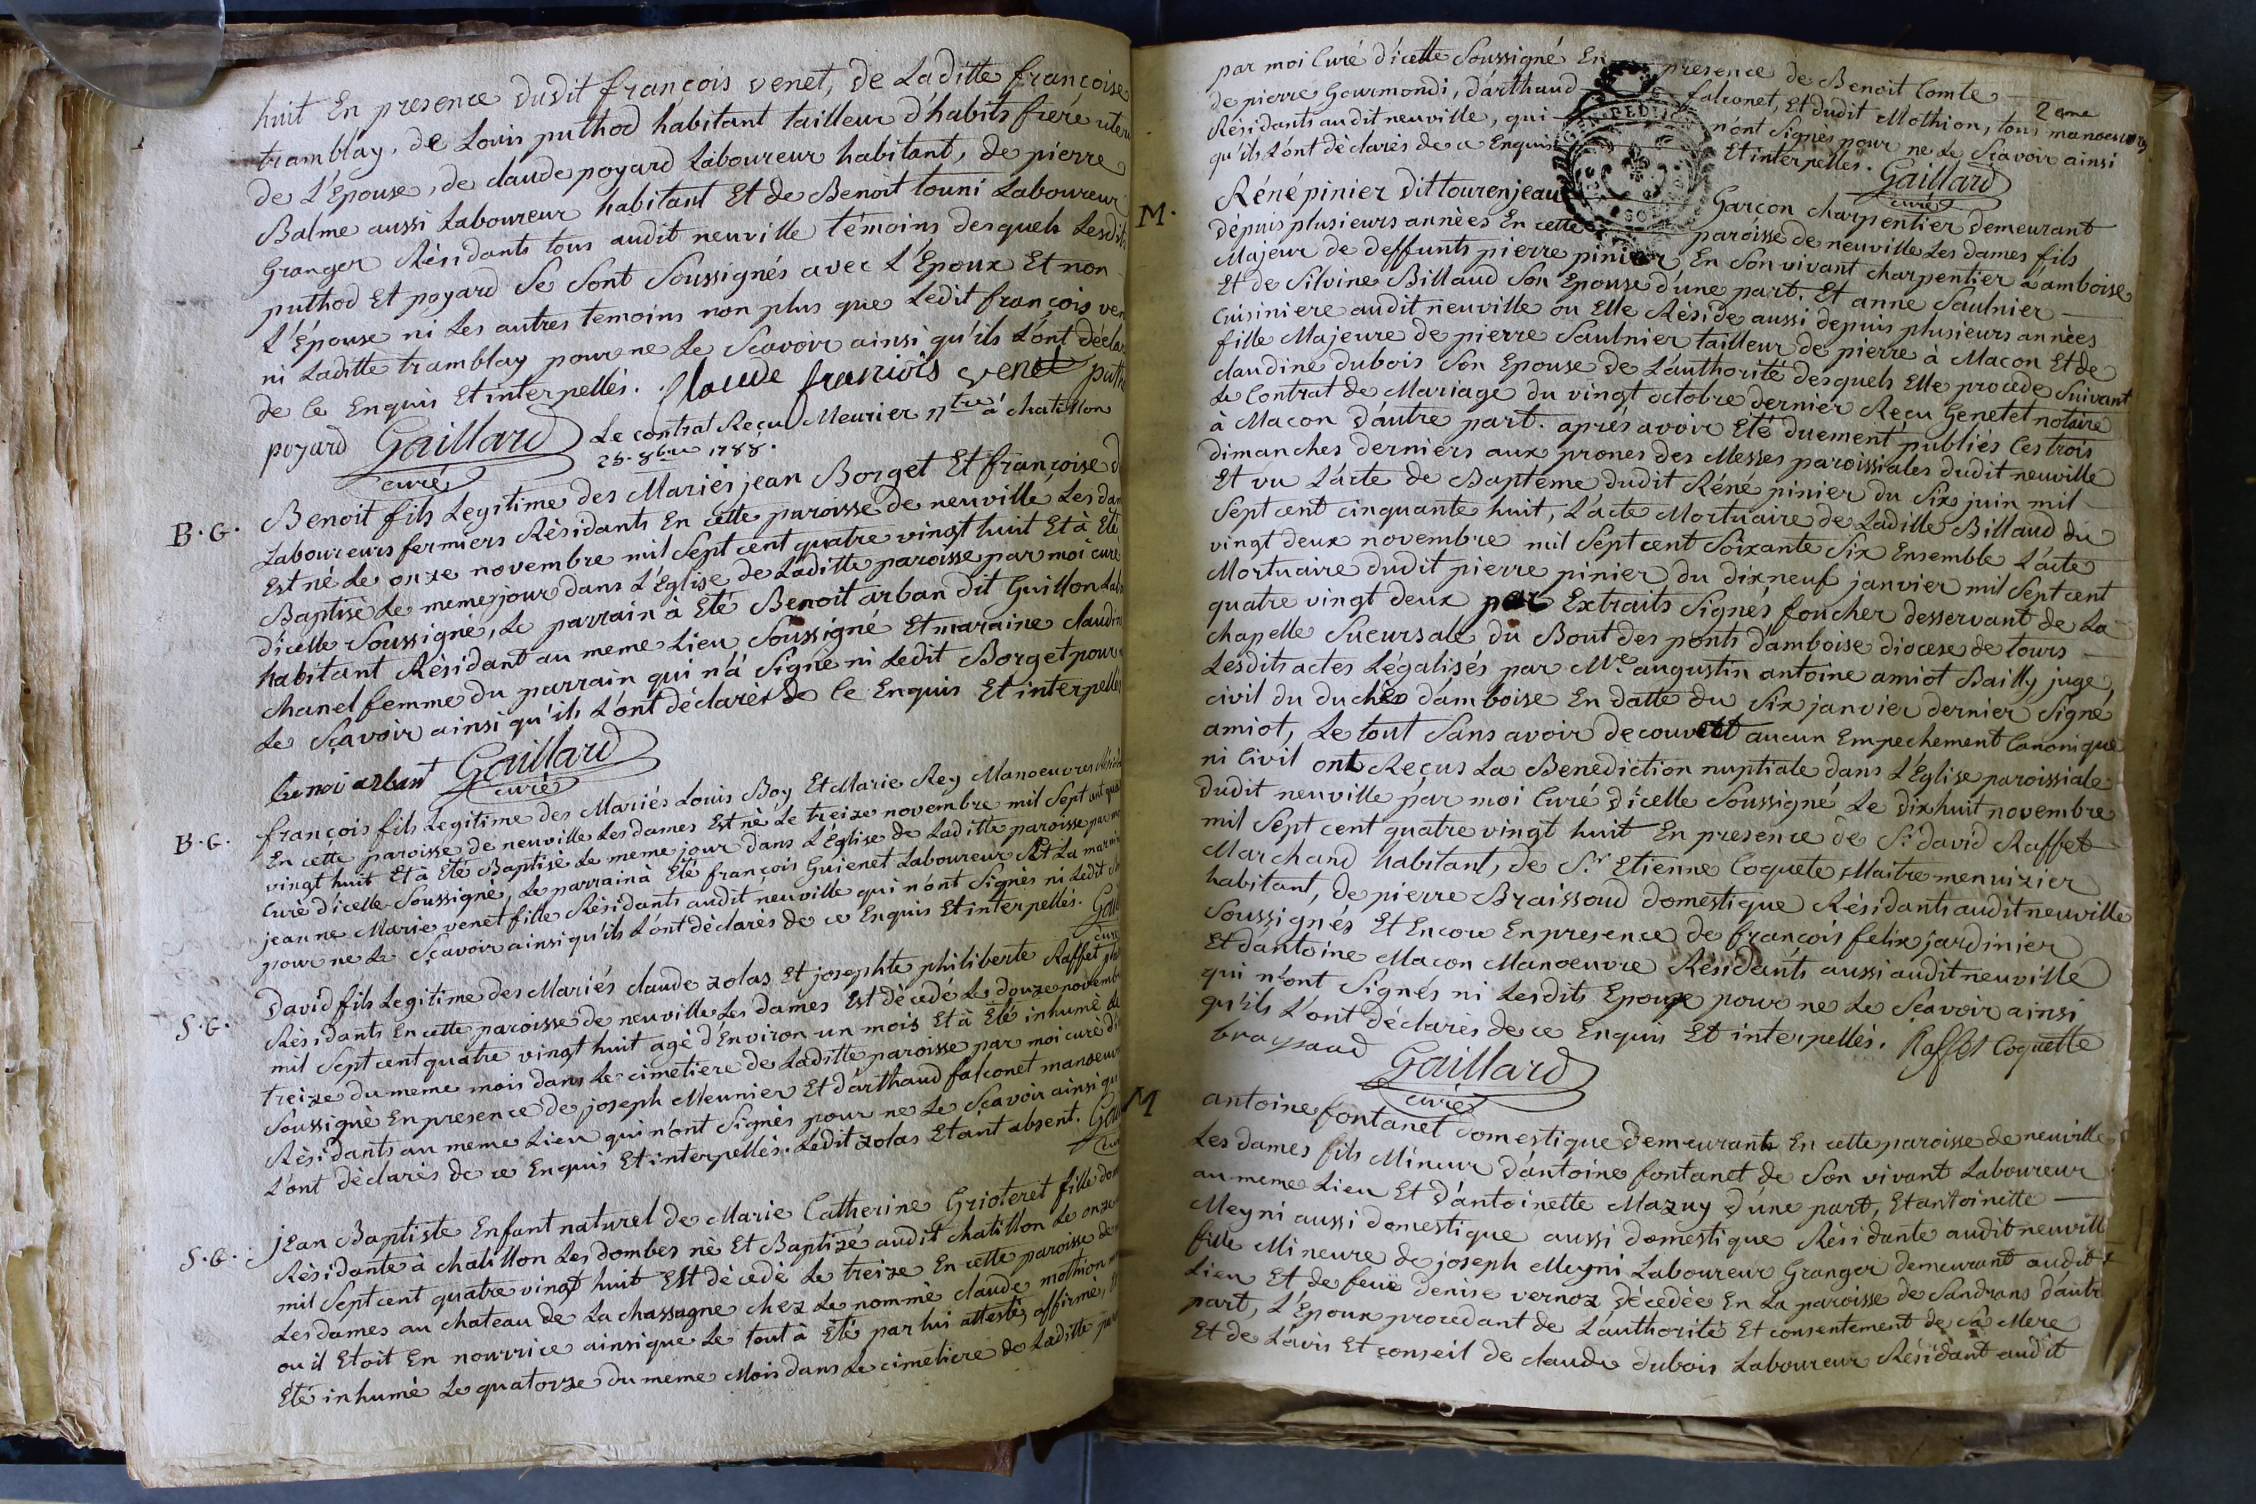 huit En presence dudit françois venet, de Laditte françoise
tramblay, de Louis puthod habitant tailleur d'habits frere
de L'Epouse, de claude poyard Laboureur habitant, de pierre
Balme aussi Laboureur habitant Et de Benoit touni Laboureur
Granger Résidants tous audit neuville témoins desquels
puthod Et poyard Se Sont Soussignés avec L'Epoux Et non
L'Épouse ni Les autres temoins non plus que Ledit françois
ni Laditte tramblay pour ne Le Scavoir ainsi qu'ils L'ont
de Ce Enquis Et interpellés. Claude franciois venet
poyard Gaillard Le contrat Reçu Meunier ntre à chatillon
curé 25. 8bre 1788.
B. G. Benoit fils Legitime des Mariés jean Borget Et françoise
Laboureurs fermiers Résidants En cette paroisse de neuville Les
Est né Le onze novembre mil Sept cent quatre vingt huit Et à Eté
Baptisé Le meme jour dans L'Eglise de Laditte paroisse par moi curé
dicelle Soussigné, Le parrain à Eté Benoit arban dit Guillon
habitant Résidant au meme Lieu Soussigné Et maraine
chanel femme du parrain qui n'à Signé ni Ledit Borget pour
Le Sçavoir ainsi qu'ils L'ont déclarés de Ce Enquis Et interpellés
benoi arban Gaillard
curé
B. G. françois fils Legitime des Mariés Louis Boy Et Marie Rey Manoeuvres
En cette paroisse de neuville Les dames Est né Le treize novembre mil Sept cent
vingt huit Et à Eté Baptisé Le meme jour dans L'Église de Laditte paroisse par
Curé dicelle Soussigné, Le parrain à Eté françois Guienet Laboureur Et La
jeanne Marie venet fille Résidants audit neuville qui n'ont Signés ni Ledit
pour ne Le Sçavoir ainsi qu'ils L'ont déclarés de ce Enquis Et interpellés.
S. G. David fils Legitime des Mariés claude zolas Et josephte philiberte Raffet
Résidants En cette paroisse de neuville Les Dames Est décédé Le douze
mil Sept cent quatre vingt huit agé d'Environ un mois Et à Eté inhumé Le
treize du meme mois dans Le cimetiere de Laditte paroisse par moi curé
Soussigné En presence de joseph Meunier Et d'arthaud falconet
Résidants au meme Lieu qui n'ont Signés pour ne Le Sçavoir ainsi
L'ont déclarés de ce Enquis Et interpellés. Ledit zolas Etant absent.
S. G. jean Baptiste Enfant naturel de Marie Catherine Grioteret fille
Résidante à chatillon Les dombes né Et Baptizé audit chatillon Le onze
mil Sept cent quatre vingt huit Est décédé Le treize En cette paroisse
Les dames au chateau de La chassagne chez Le nommé claude mothion
ou il Etoit En nourrice ainsi que Le tout à Eté par lui attesté, affirmé,
Eté inhumé Le quatorze du meme Mois dans Le cimetiere de Laditte
par moi Curé d'icelle Soussigné En presence de Benoit Comte
de pierre Gourmondi, d'arthaud falconet, Et dudit Mothion, tous manoeuvres 2eme
Résidants audit neuville, qui n'ont Signés pour ne Le Scavoir ainsi
qu'ils L'ont déclarés de ce Enquis Et interpellés. Gaillard
curé
M. Réné pinier dit tourenjeau Garçon charpentier demeurant
dépuis plusieurs années En cette paroisse de neuville Les dames fils
Majeur de deffunts pierre pinier En Son vivant charpentier à amboise
Et de Silvine Billaud Son Epouse d'une part. Et anne Saulnier
Cuisiniere audit neuville ou Elle Réside aussi depuis plusieurs années
fille Majeure de pierre Saulnier tailleur de pierre à Macon Et de
claudine dubois Son Epouse de L'authorité desquels Elle procede Suivant
Le Contrat de Mariage du vingt octobre dernier Reçu Genetet notaire
à Macon d'autre part. aprés avoir Eté duement publiés Les trois
dimanches derniers aux prones des Messes paroissiales dudit neuville
Et vu L'acte de Bapteme dudit Réné pinier du Six juin mil
Sept cent cinquante huit, L'acte Mortuaire de Laditte Billaud du
vingt deux novembre mil Sept cent Soixante Six Ensemble L'acte
Mortuaire dudit pierre pinier du dix neuf janvier mil Sept cent
quatre vingt deux par Extraits Signés foucher desservant de La
chapelle Sucursale du Bout des ponts d'amboise diocese de tours
Lesdits actes Légalisés par Mre augustin antoine amiot Bailly juge
civil du duché d'amboise En datte du Six janvier dernier Signé
amiot, Le tout Sans avoir decouvert aucun Empechement Canonique
ni Civil ont Reçus La Benediction nuptiale dans L'Eglise paroissiale
dudit neuville par moi Curé dicelle Soussigné Le dix huit novembre
mil Sept cent quatre vingt huit En presence de Sr david Raffet
Marchand habitant, de Sr Etienne Coquete Maitre menuizier
habitant, de pierre Braissoud domestique Résidants audit neuville
Soussignés Et Encore En presence de françois felix jardinier
Et dantoine Macon Manoeuvre Résidants aussi audit neuville
qui n'ont Signés ni Lesdits Epoux pour ne Le Scavoir ainsi
qu'ils L'ont déclarés de ce Enquis Et interpellés. Raffet Coquette
Gaillard
curé
M antoine fontanet domestique demeurant En cette paroisse de neuville
Les dames fils Mineur d'antoine fontanet de Son vivant Laboureur
au meme Lieu Et d'antoinette Mazuy d'une part, Et antoinette
Meyni aussi domestique aussi domestique Résidante audit neuville
fille Mineure de joseph Meyni Laboureur Granger demeurant audit
Lieu Et de feuë denise vernoz décédée En La paroisse de Sandrans d'autre
part, L'Epoux procedant de L'authorité Et consentement de Sa Mere
Et de L'avis Et conseil de claude dubois Laboureur Résidant audit